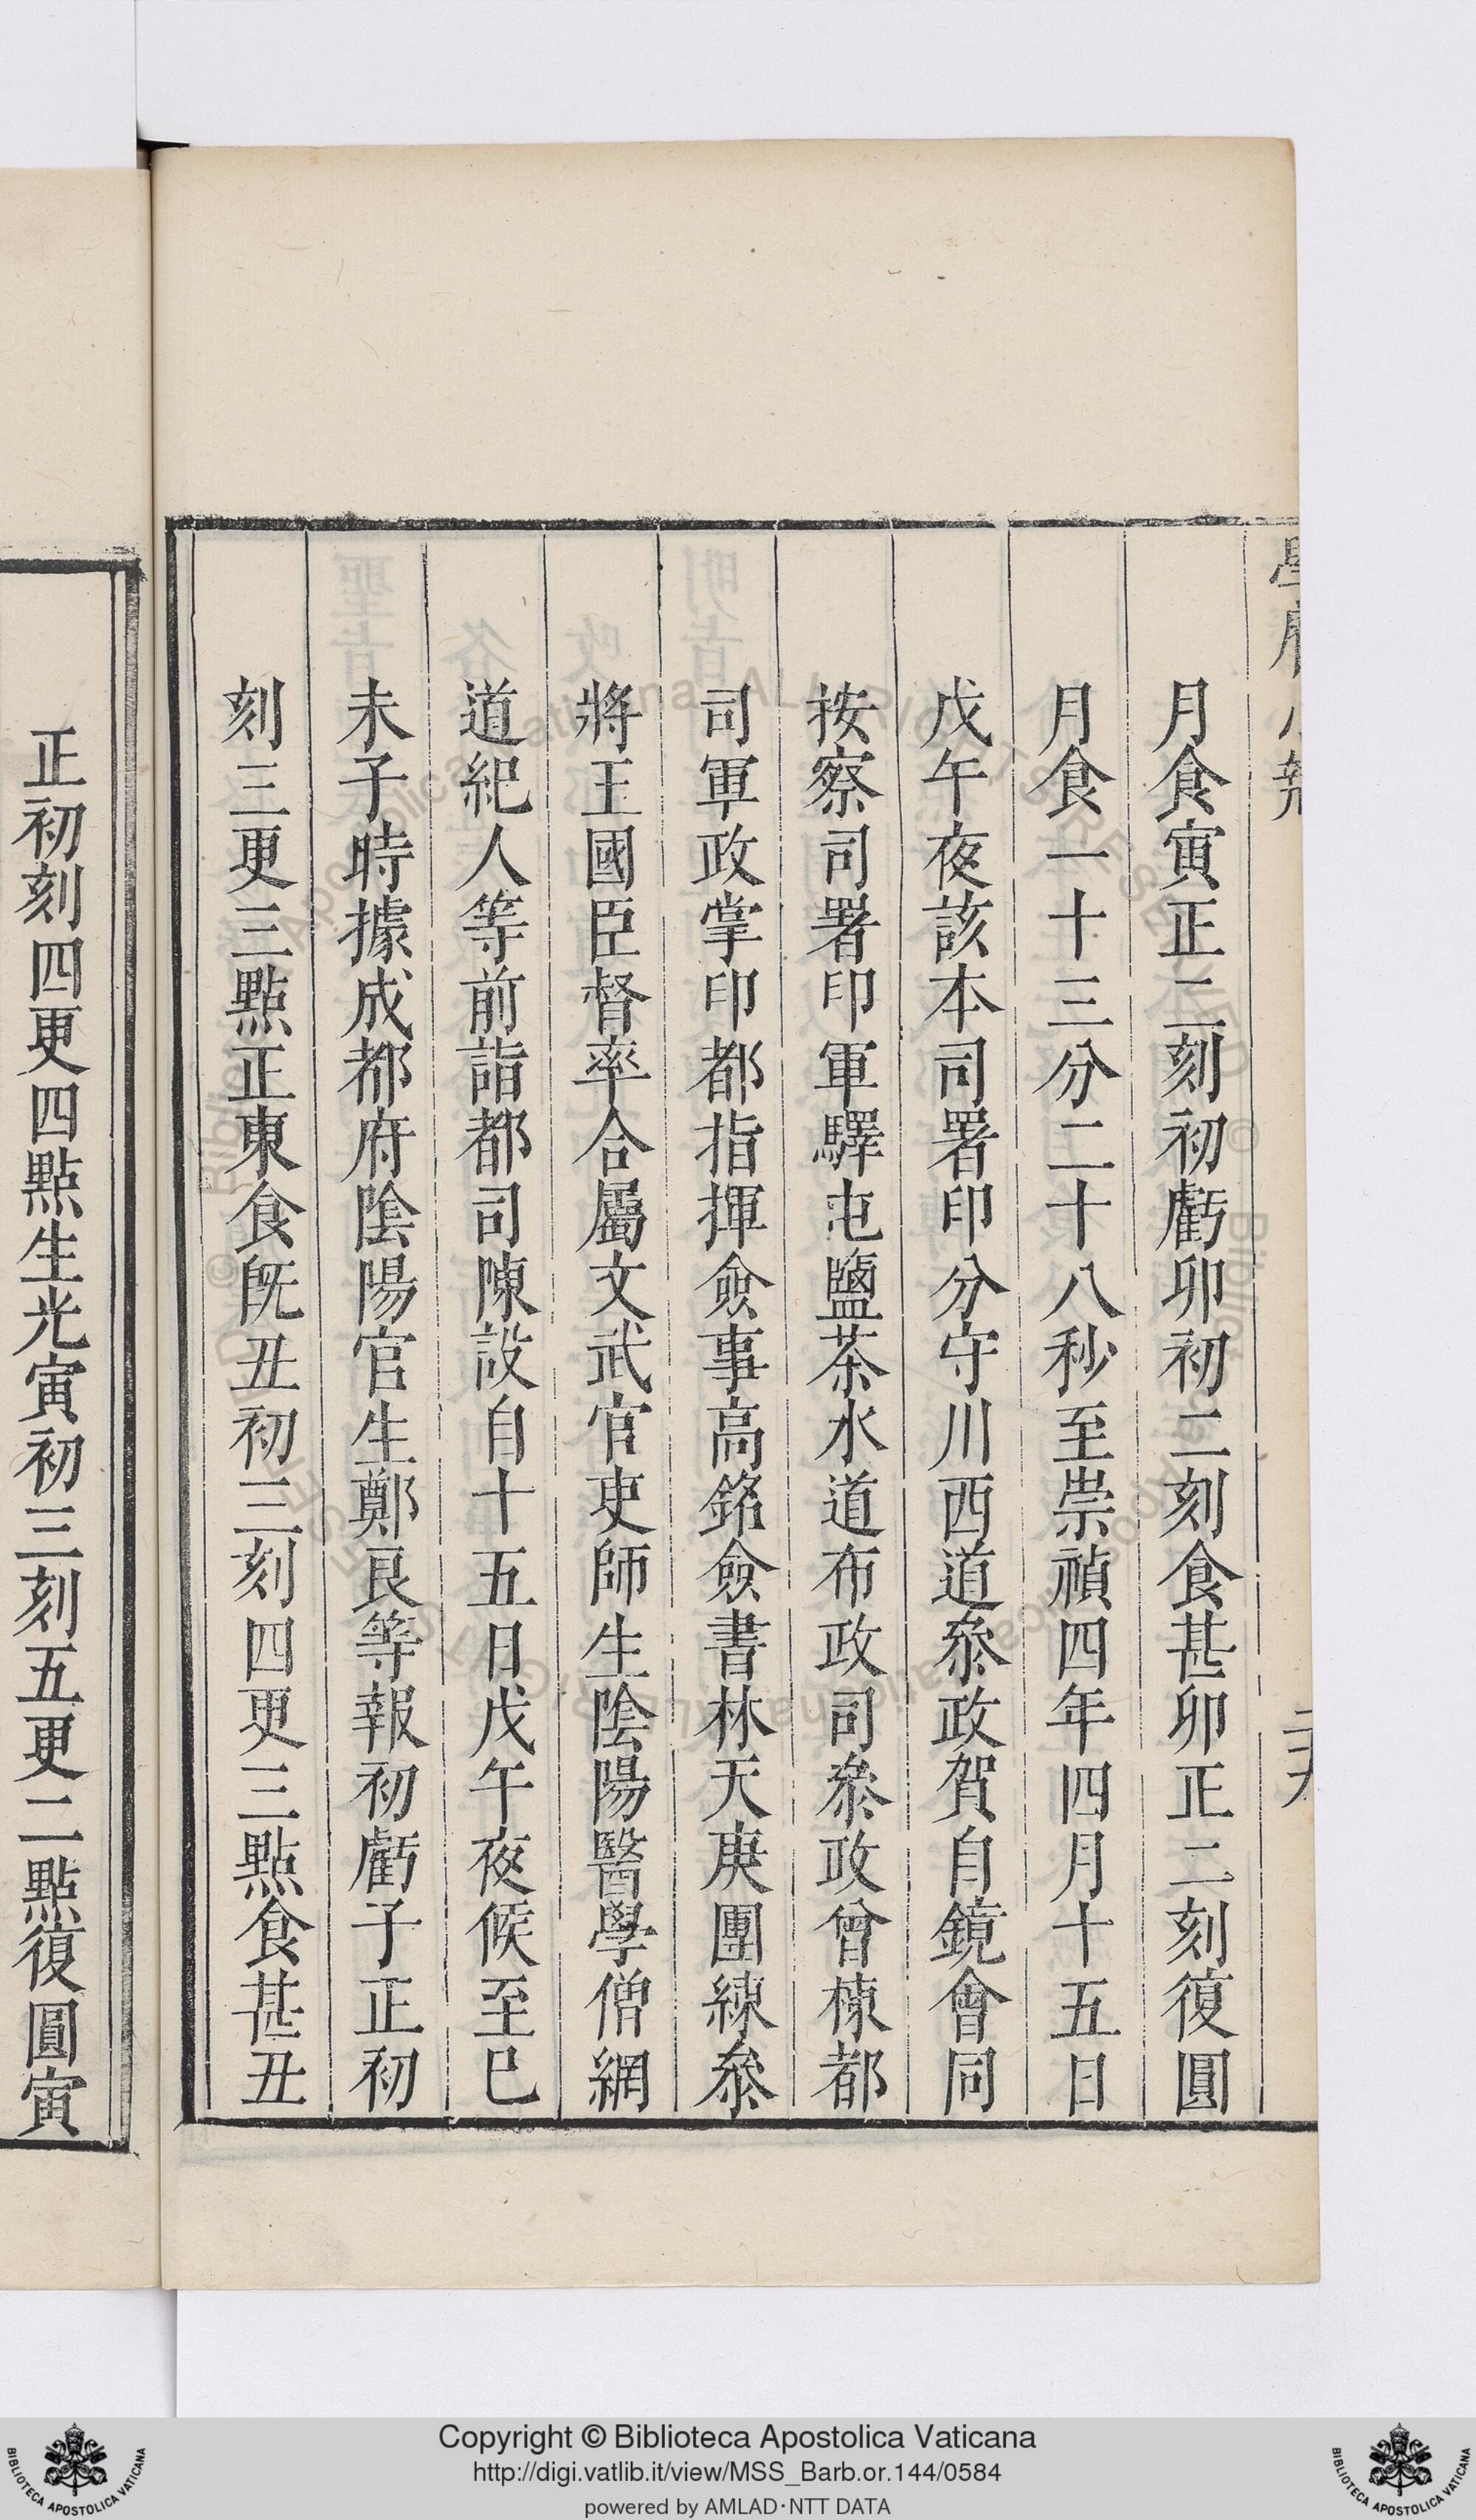 月食寅正二刻初虧卯初二刻食甚卯正二刻復圓
月食一十三分二十八秒至崇禎四年四月十五日
戊午夜該本司署印分守川西道叅政賀自鏡會同
按察司署印軍驛屯鹽茶水道布政司叅政曾棟都
司軍政掌印都指揮僉事高銘僉書林天庚團練叅
將王國臣督率合屬文武官吏師生陰陽醫學僧網
道紀人等前詣都司陳設自十五日戊午夜候至巳
未子時據成都府陰陽官生鄭良等報初虧子正初
刻三更三點正東食既丑初三刻四更三點食甚丑
正初刻四更四點生光寅初三刻五更二點復圓寅
Copyright © Biblioteca Apostolica Vaticana
http://digi.vatlib.it/view/MSS_Barb.or.144/0584
powered by AMLAD·NTT DATA
BIBLIOTECA APOSTOLICA VATICANA
BIBLIOTECA APOSTOLICA VATICANA